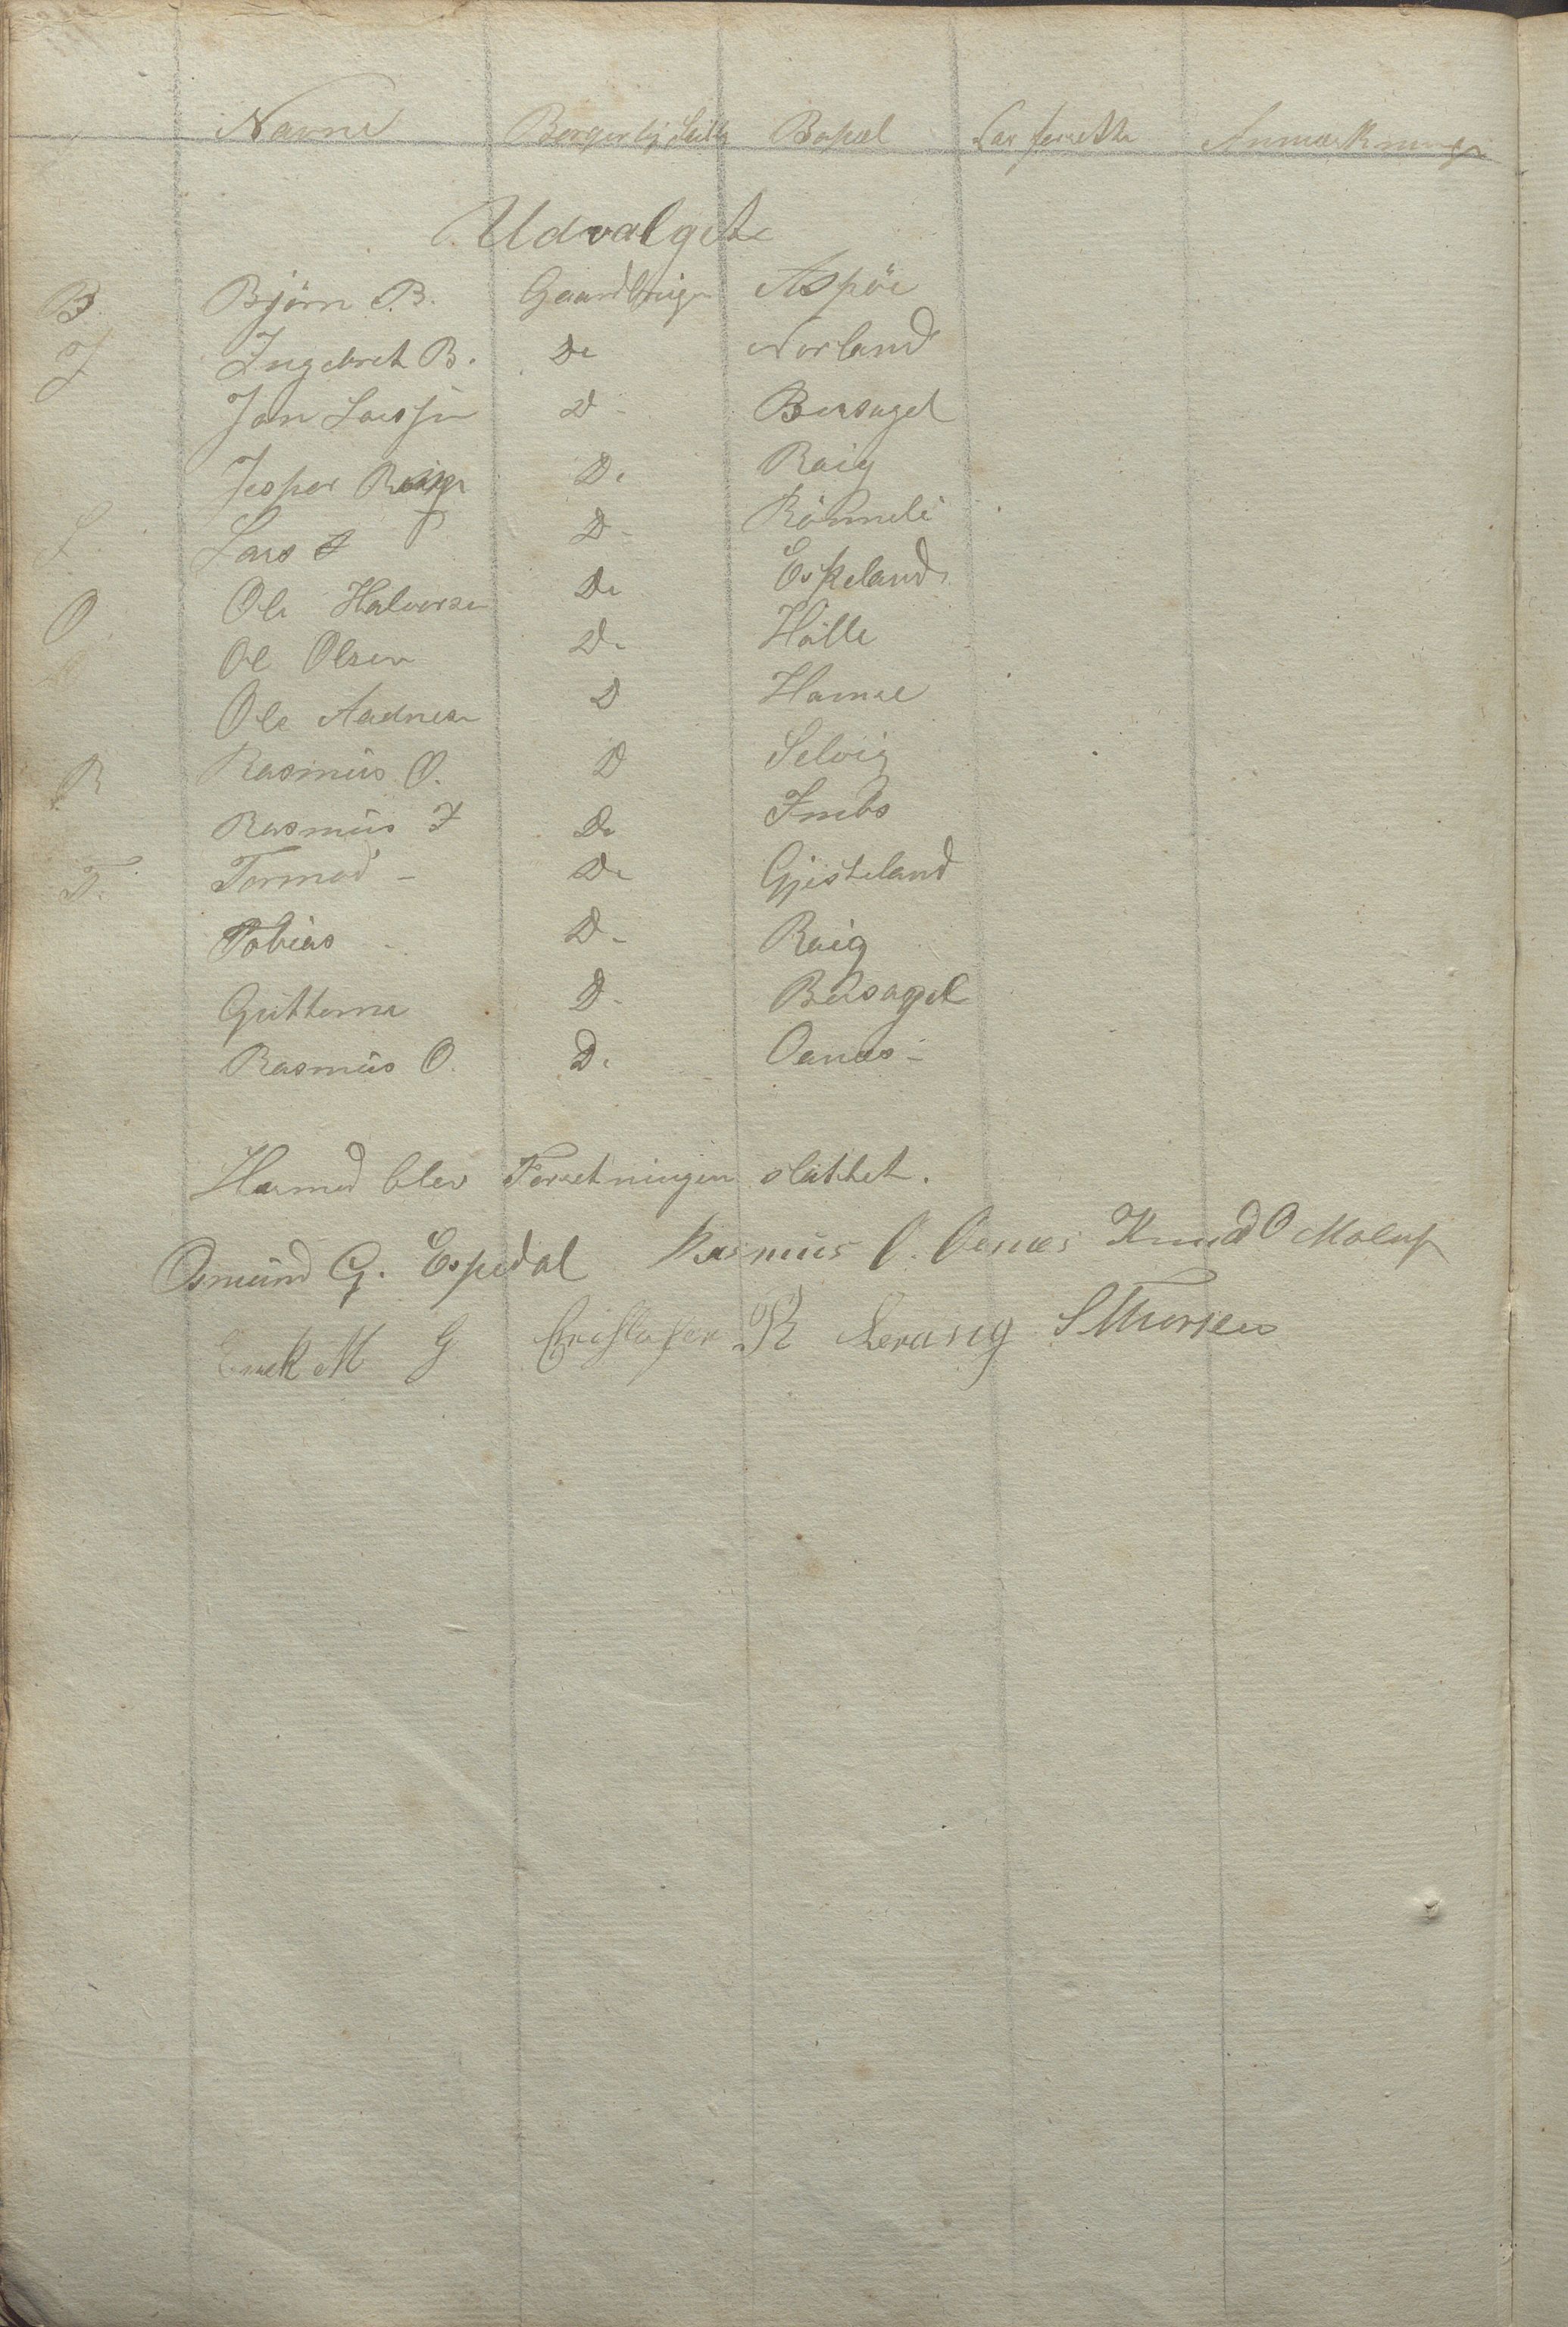 Navne Borgerlig Stilling Bopæl Anmærkninger
Udvalgte
B. Björn B. Gaardbruger Aspöe
I Ingebret B. Do Norland
Jan Larssen D- Bersagel
Jesper D. Raig
L. Lars D- Rönneli
O. Ole Halvorsen Do Eskeland
Ole Olsen D. Hölle
Ole Aadnesen D Hamre
R Rasmus O. D Selvig
Rasmus I Do
T. Tormod - Do Gjesteland
Tobias - D- Raig
Guttorm D- Bersagel
Rasmus O. D. Oanæs -
Hermed blev Forretningen sluttet.
Osmund G. Espedal Rasmus O. Oenæs Knud O
M G R Lerang